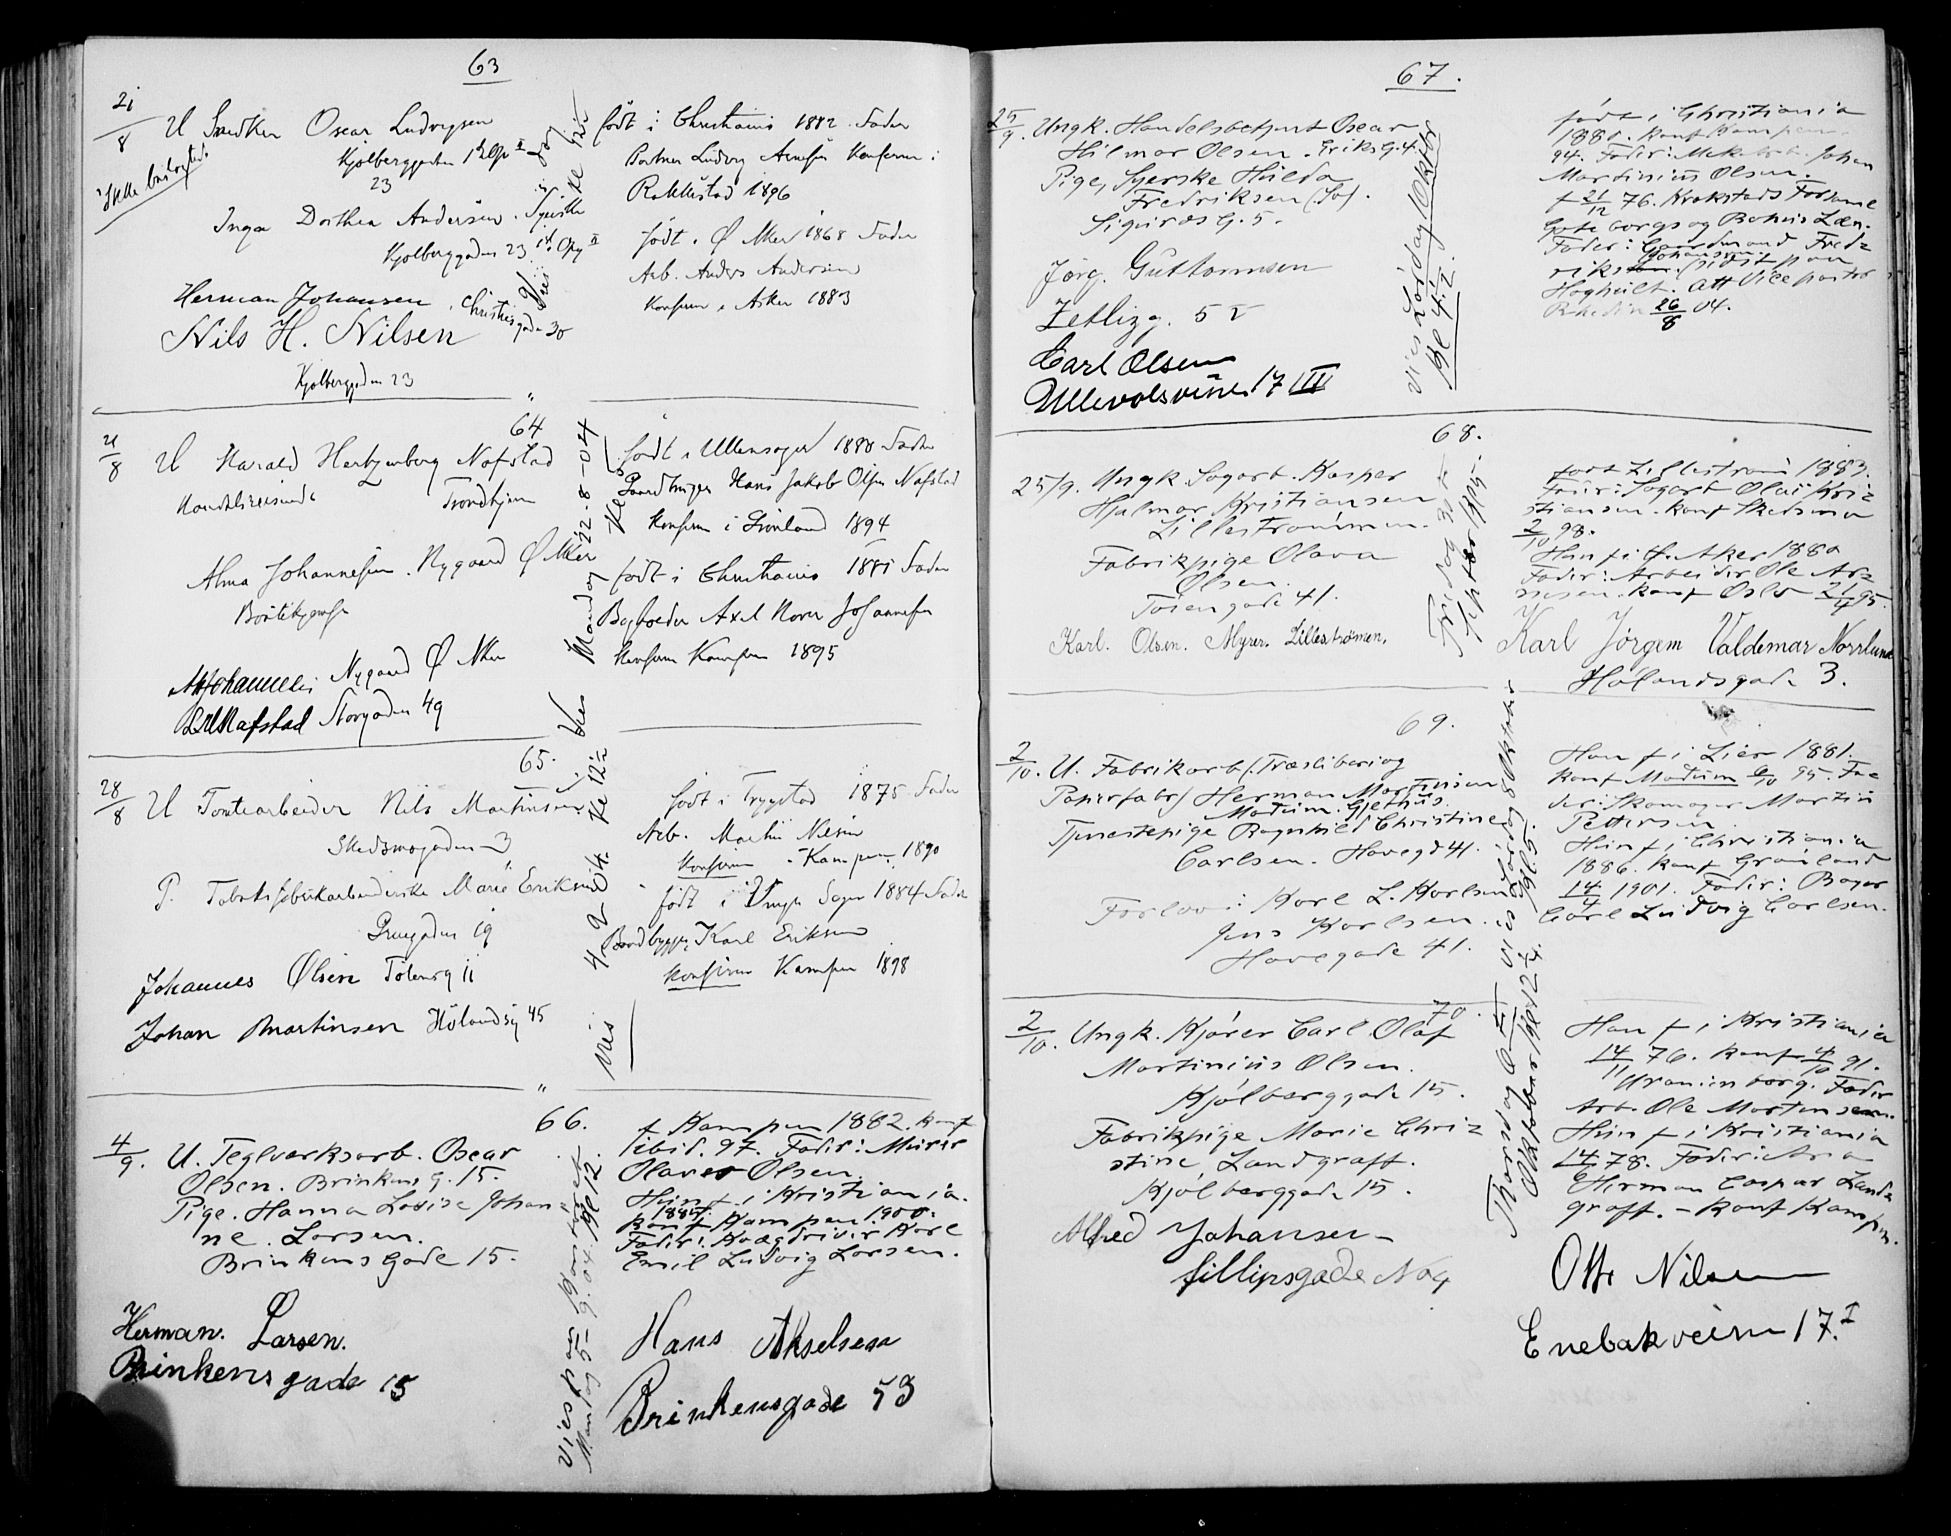 63
21/8 U Snedker Oscar Ludvigsen
Kjølberggaden
23
Inga Dorthea Andersen. Syerske
Kjølberggaden 23
Herman Johansen, Christiesgade 30
Nils H. Nilsen
Kjølberggaden 23
født i Christiania 1882 Fader
Ludvig Konfirm i
Rakkestad 1896
født i Ø Aker 1868 Fader
Arb. Anders Andersen
Konfirm i Asker 1883
64
21/8 U Harald Hertzenberg Nafstad
Handelsreisende Trondhjem
Alma Johannesen. Nygaard Ø Aker
Nygaard Ø Aker
Nafstad Storgaden 49
Vies Mandag 22-8-04 Kl 5
født i Ullensager 1880 Fader
Gaardbruger Hans Jakob Olsen Nafstad
Konfirm i 1894
født i Christiania 1881 Fader
Axel Johannesen
Konfirm Kampen 1895
65.
28/8 U Tomtearbeider Nils Martinsen
Skedsmogaden 3
P. Marie Eriksen
19
Johannes Olsen Tøieng 11
Johan Martinsen Hølandsg 45
Vies 4-9-04. Kl 12 1/2
født i Trygstad 1875 Fader
Arb. Martin Nilsen
Konfirm i Kampen 1890
født i 1884 Fader
Karl Eriksen
Konfirm Kampen 1898
66.
4/9. U. Teglverksarb. Oscar
Olsen. Brinkens G. 15.
Pige. Hanna Lovise Johan
ne. Larsen.
Brinkens Gade 15.
Herman. Larsen.
Brinkensgade 15
Vies paa Kontoret
Mandag 5-9.04. Kl 12.
f Kampen 1882. konf
ibid. 97. Fader: Murer
Olaves Olsen
Hun f i Kristiania.
1885.
Konf Kampen 1900.
Fader: Kvægdriver Karl
Emil Ludvig Larsen.
Hans Akselsen
Brinkensgade 53
67.
25/9. Ungk. Handelsbetjent Oscar
Hilmar Olsen. Eriks G. 4.
Pige, Syerske Hulda
Fredriksen (Sv).
Sigurds G. 5.
Jørg. Guttormsen
Zetlizg. 5 V
Carl Olsen
Ullevolsveien 17 III
Vies Lørdag 1 Oktbr
Kl 4 1/2
født i Christiania
1880. konf Kampen
94. Fader: Johan
Martinius Olsen.
f 21/12 76. Krokstads Forsaml
Gøteborgs og Bohus Læn.
Fader: Fred=
rik Johansson
Att Vice pastor
26/8 04.
68.
25/9. Ungk Sagarb. Kasper
Hjalmar Kristiansen
Lillestrømmen.
Fabrikpige Olava
Olsen.
Tøiengade 41.
Karl. Olsen. Myrer. Lillestrømen.
Fredag 30te
Septbr
født Lillestrøm 1883.
Fader: Sagarb Olai Kris
tiansen. konf Skedsmo
2/10 98.
Hun f i Ø. Aker 1880
Fader: Arbeider Ole Ar=
nesen. konf Oslo
Karl Jørgen Valdemar Norrlund
Hølandsgade 3.
69.
2/10. U. Fabrikarb (Træsliberi og
Papirfabr) Herman Martinsen
Modum. Gjethus.
Tjenestepige Ragnhild Christine
Carlsen. Havegd 41.
Forlover: Karl L. Karlsen
Jens Karlsen.
Havegade 41.
Vies Lørdag 8 Oktober
Kl. 5.
Han f i Lier 1881.
konf Modum 6/10 95. Fa
der: Skomager Martin
Pettersen
Hun f i Christiania
1886. konf Grønland
14/4 1901. Fader: Bager
Carl Ludvig Carlsen.
70.
2/10. Ungk. Kjører Carl Olaf
Martinius Olsen.
Kjølberggade 15.
Fabrikpige Marie Chris
tine Landgraff.
Kjølberggade 15.
Alfred Johansen
fillipsgade No 4
Thorsdag 6te
Oktober Kl 12
Han f i Kristiania
14/11 76. konf 4/10 91.
Uranienborg. Fader
Arb. Ole Mortensen.
Hun f i Kristiania
78. Fader:
Herman Caspar Land=
graff. - konf Kampen.
Otto Nilsen
Enebakveien 17. I